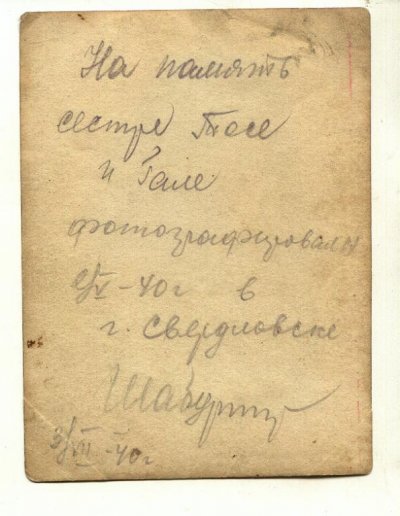 На память
сестре Тосе
и Гале
фотографировался
/V -40г в
г. Свердловске
3/VII -40г